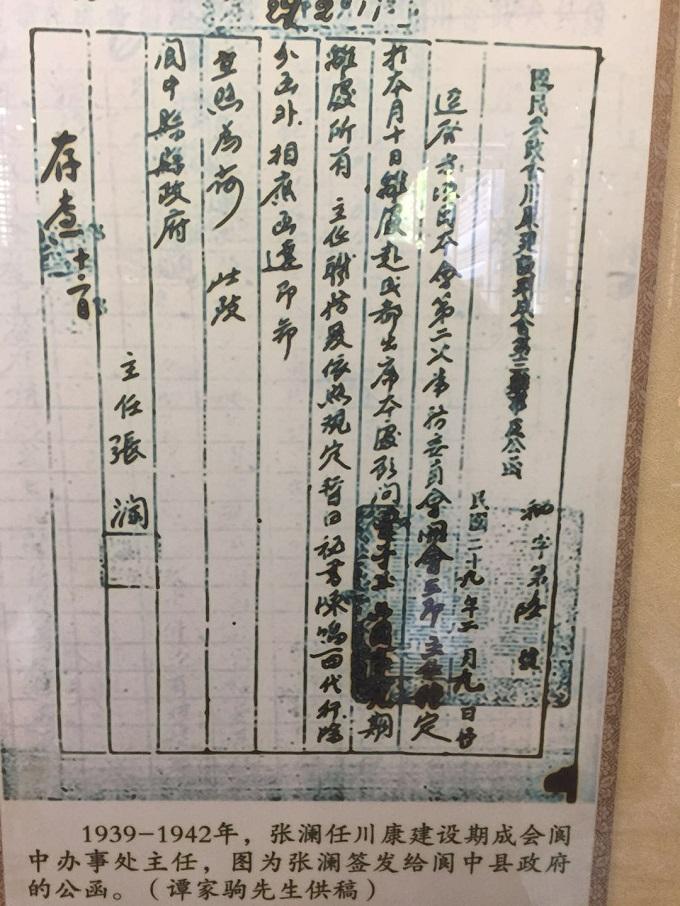 29 2 11
国民参政会川康建設期成会第三辦事處公函
秘字第陸號
民國二十九年二月九日發
逕启者項因本會第二次常務委員會開會在即主任特定
於本月十日離處赴成都出席本處顧問
離處所有主任職務爰依照規定暫由秘書陳鳴西代行除
分函外相應函達即希
查照為荷 此致
閬中縣縣政府
主任張瀾
存查
1939-1942年，张澜任川康建设期成会阆
中办事处主任，图为张澜签发给阆中县政府
的公函。（谭家驹先生供稿）